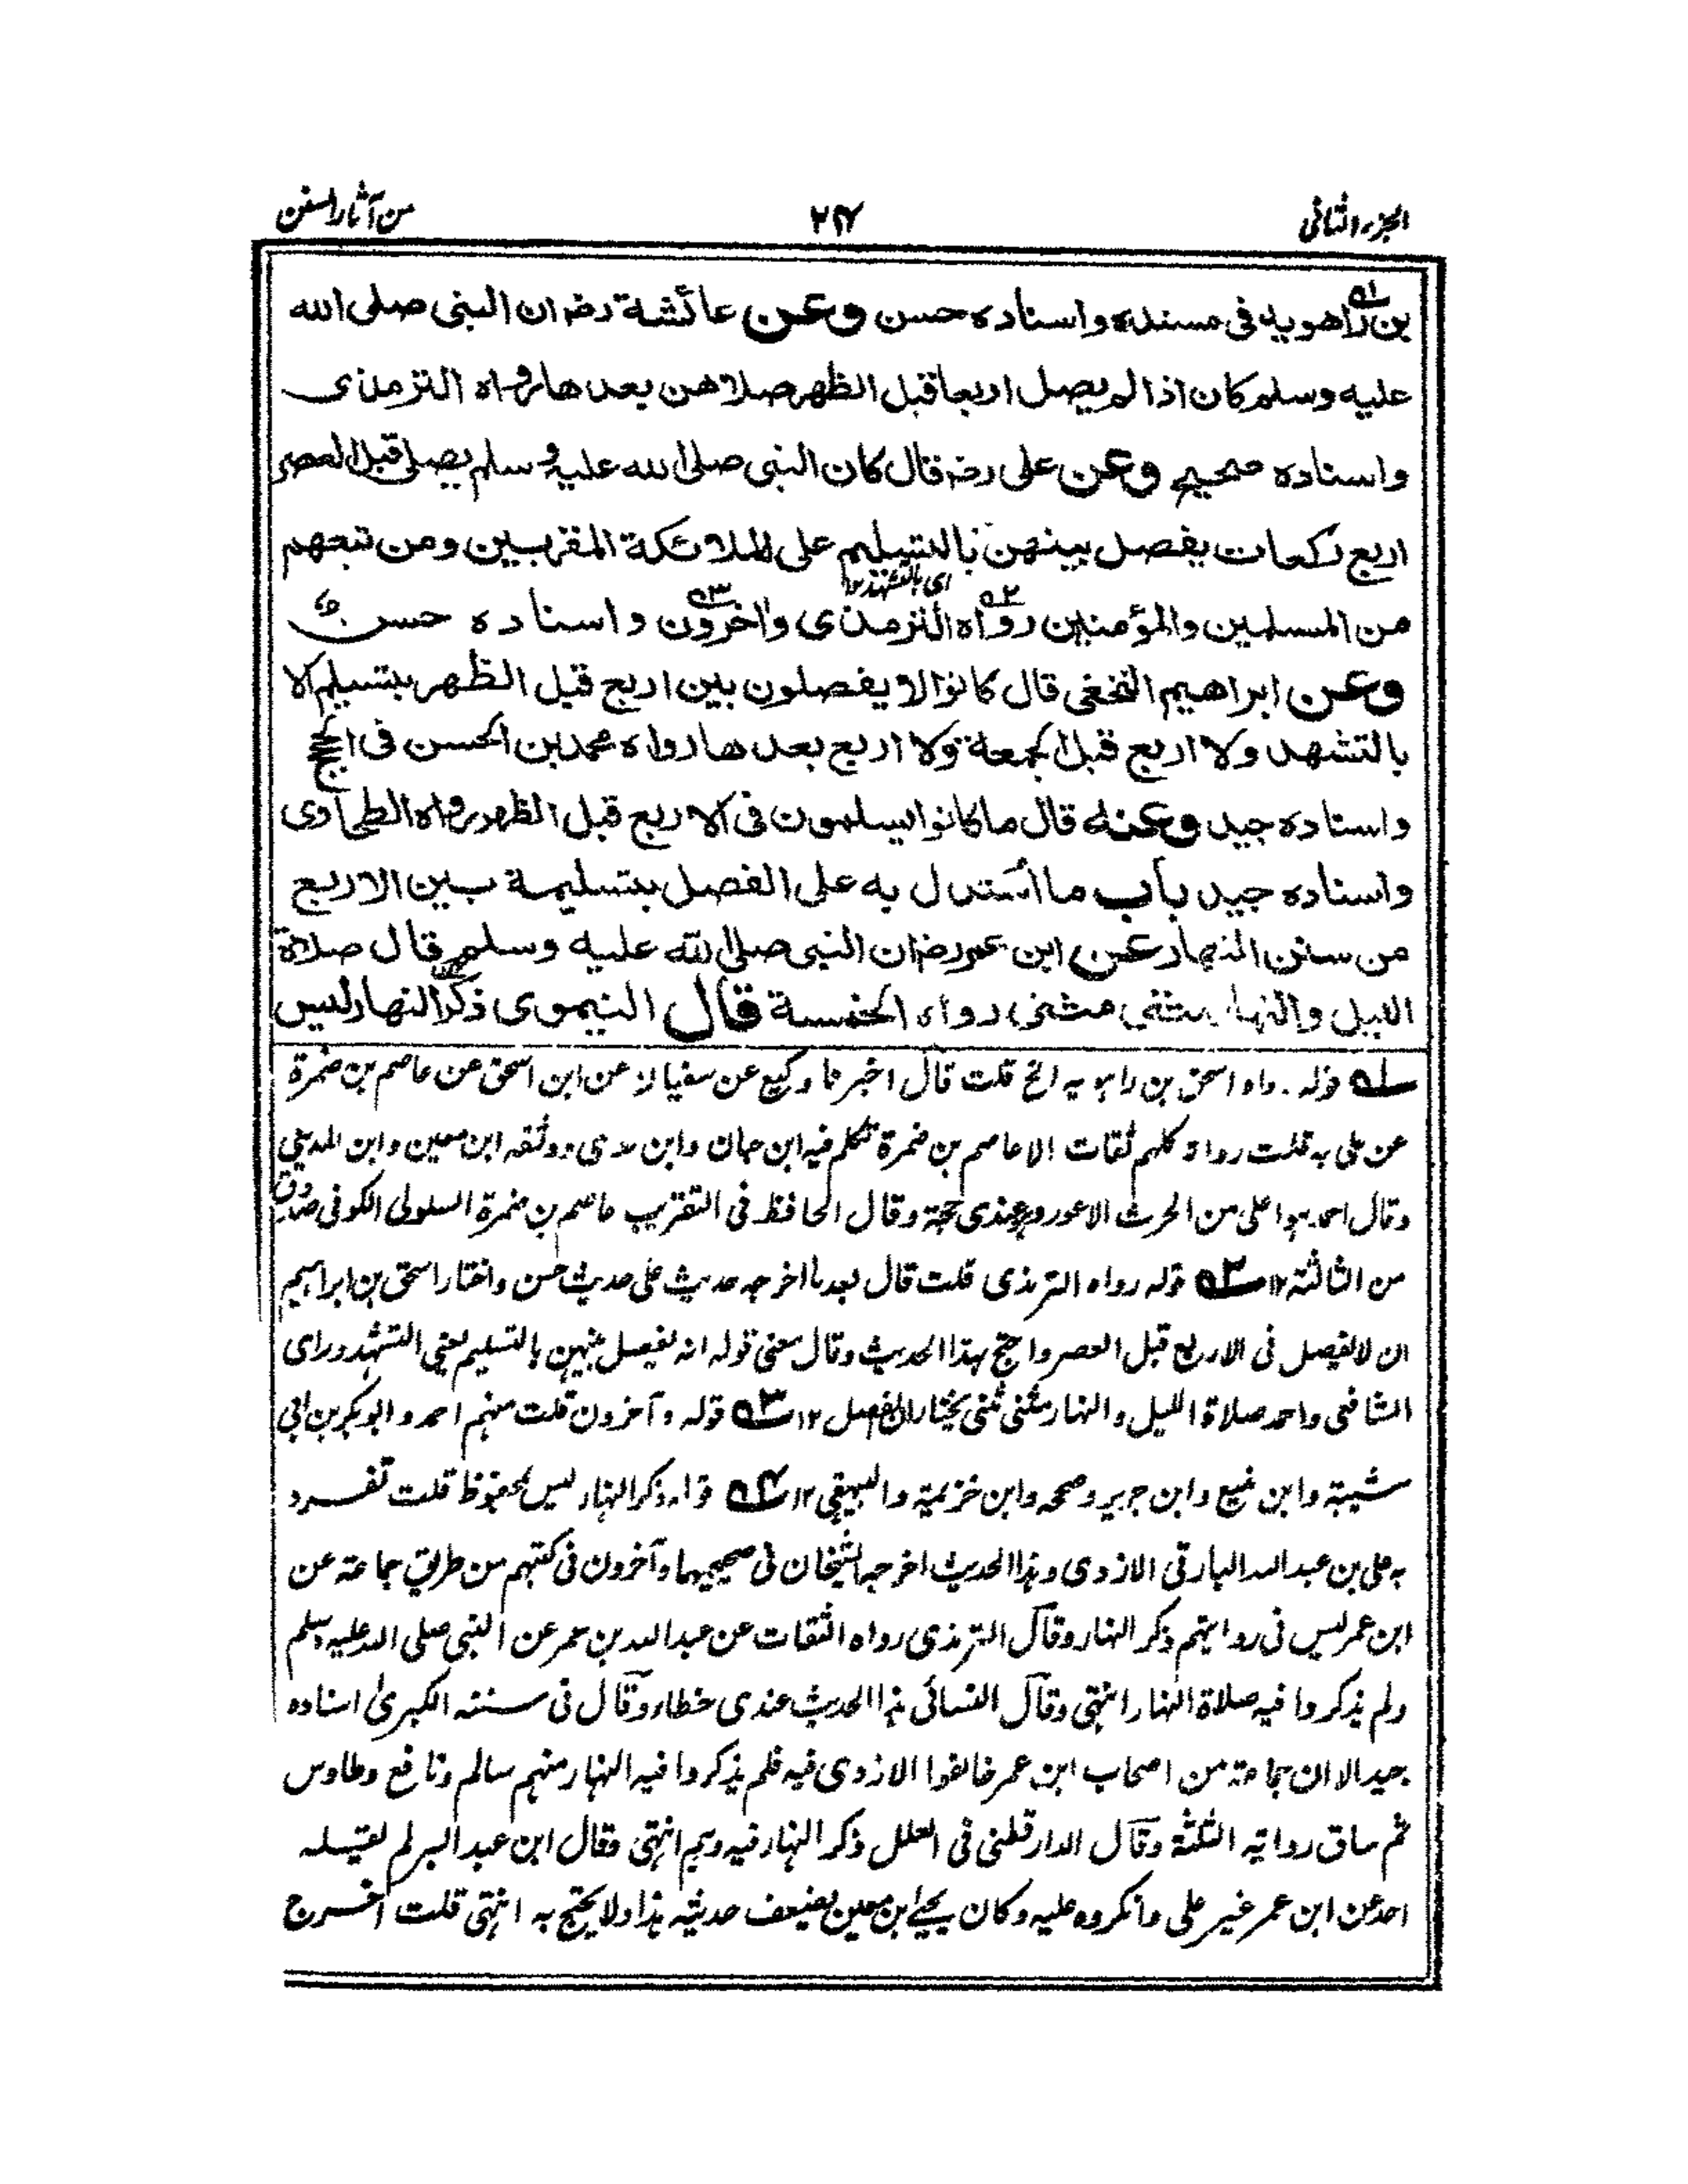 الجزء الثاني
٢٤
من آثار السنن
بن راهويه في مسنده واسناده حسن وعن عائشة رضـ ان النبي صلى الله
عليه وسلم كان اذا لم يصل اربعا قبل الظهر صلاهن بعدها رواه الترمذى
واسناده صحيح وعن على رضـ قال كان النبي صلى الله عليه وسلم يصلى قبل العصر
اربع ركعات يفصل بينهن بالتسليم على الملائكة المقربين ومن تبعهم
اى بالتشهد ١٢
من المسلمين والمؤمنين رواه الترمذى واخرون واسناده حسن
وعن ابراهيم النخعى قال كانوا لا يفصلون بين اربع قبل الظهر بتسليم الا
بالتشهد ولا اربع قبل الجمعة ولا اربع بعدها رواه محمد بن الحسن فى الحجج
واسناده جيد وعنه قال ما كانوا يسلمون فى الاربع قبل الظهر رواه الطحاوى
واسناده جيد باب ما استدل به على الفصل بتسليمة بين الاربع
من سنن النهار عن ابن عمر رضـ ان النبي صلى الله عليه وسلم قال صلاة
الليل والنهار مثنى مثنى رواه الخمسة قال النيموى ذكر النهار ليس
١ قوله رواه اسحق بن راهويه الخ قلت قال اخبرنا وكيع عن سفيان عن ابن اسحق عن عاصم بن ضمرة
عن على به قلت رواته كلهم ثقات الا عاصم بن ضمرة تكلم فيه ابن حبان وابن عدى ووثقه ابن معين وابن المديني
وقال احمد هو اعلى من الحرث الاعور وهو عندى حجة وقال الحافظ فى التقريب عاصم بن ضمرة السلولى الكوفى صدوق
من الثالثة ١٢ ٢ قوله رواه الترمذى قلت قال بعد ما اخرجه حديث على حديث حسن واختار اسحق بن ابراهيم
ان لا يفصل فى الاربع قبل العصر واحتج بهذا الحديث وقال معنى قوله انه يفصل بينهن بالتسليم يعنى التشهد وراى
الشافعى واحمد صلاة الليل والنهار مثنى مثنى يختاران الفصل ١٢ ٣ قوله وآخرون قلت منهم احمد وابو بكر بن ابى
شيبة وابن منيع وابن جرير وصححه وابن خزيمة والبيهقى ١٢ ٤ قوله ذكر النهار ليس بمحفوظ قلت تفرد
به على بن عبد الله البارقى الازدى وهذا الحديث اخرجه الشيخان فى صحيحيهما وآخرون فى كتبهم من طريق جماعة عن
ابن عمر ليس فى روايتهم ذكر النهار وقال الترمذى رواه الثقات عن عبد الله بن عمر عن النبى صلى الله عليه وسلم
ولم يذكروا فيه صلاة النهار انتهى وقال النسائى هذا الحديث عندى خطاء وقال فى سننه الكبرى اسناده
جيد الا ان جماعة من اصحاب ابن عمر خالفوا الازدى فيه فلم يذكروا فيه النهار منهم سالم ونافع وطاوس
ثم ساق رواية الثلثة وقال الدارقطنى فى العلل ذكر النهار فيه وهم انتهى وقال ابن عبد البر لم يقله
احد عن ابن عمر غير على وانكروه عليه وكان يحيى ابن معين يضعف حديثه هذا ولا يحتج به انتهى قلت اخرج